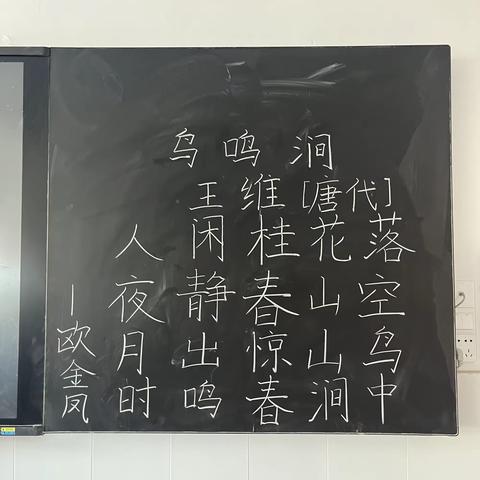 鸟鸣涧
王维[唐代]
人闲桂花落
夜静春山空
月出惊山鸟
时鸣春涧中
一欧金凤